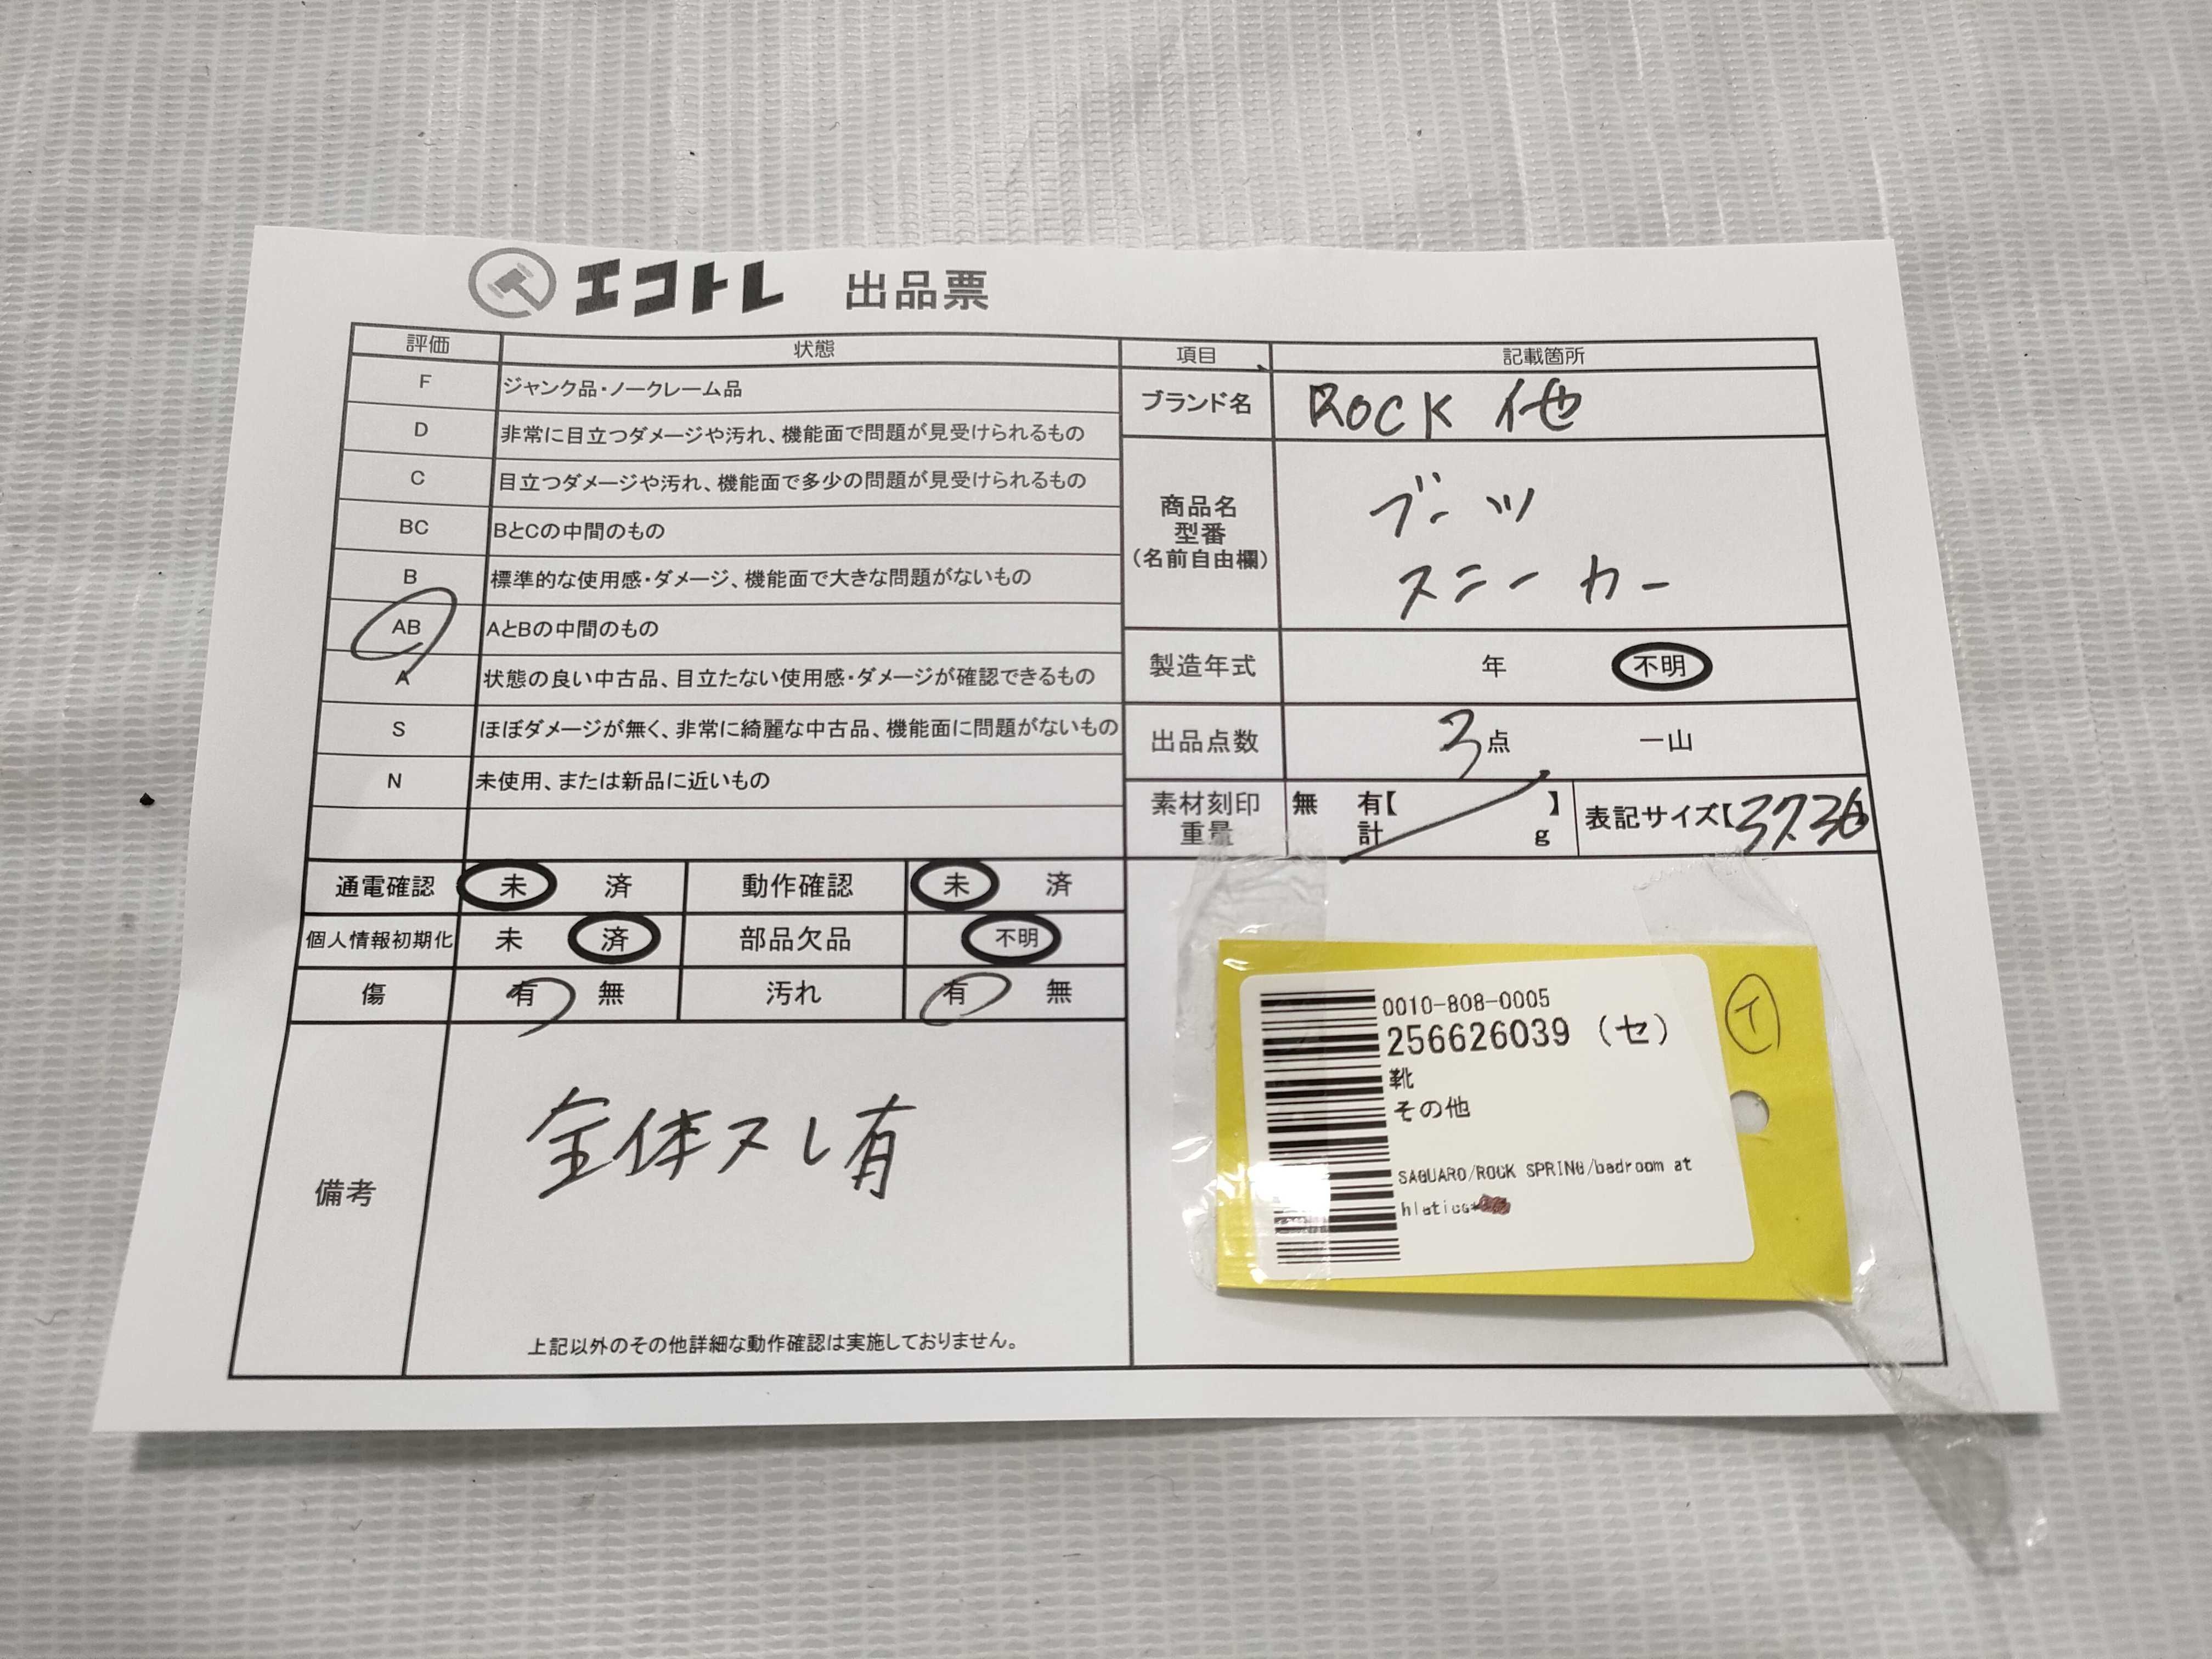 エコトレ 出品票
評価 状態
F ジャンク品・ノークレーム品
D 非常に目立つダメージや汚れ、機能面で問題が見受けられるもの
C 目立つダメージや汚れ、機能面で多少の問題が見受けられるもの
BC BとCの中間のもの
B 標準的な使用感・ダメージ、機能面で大きな問題がないもの
AB AとBの中間のもの
A 状態の良い中古品、目立たない使用感・ダメージが確認できるもの
S ほぼダメージが無く、非常に綺麗な中古品、機能面に問題がないもの
N 未使用、または新品に近いもの
項目 記載箇所
ブランド名 ROCK 他
商品名
型番
(名前自由欄)
ブーツ
スニーカー
製造年式 年 不明
出品点数 3点 一山
素材刻印 無 有【 】
重量 計 g
表記サイズ【37.36】
通電確認 未 済 動作確認 未 済
個人情報初期化 未 済 部品欠品 不明
傷 有 無 汚れ 有 無
備考
全体スレ有
上記以外のその他詳細な動作確認は実施しておりません。
0010-808-0005
256626039 (セ)
靴
その他
SAGUARO/ROCK SPRING/badroom at
hletics*
イ